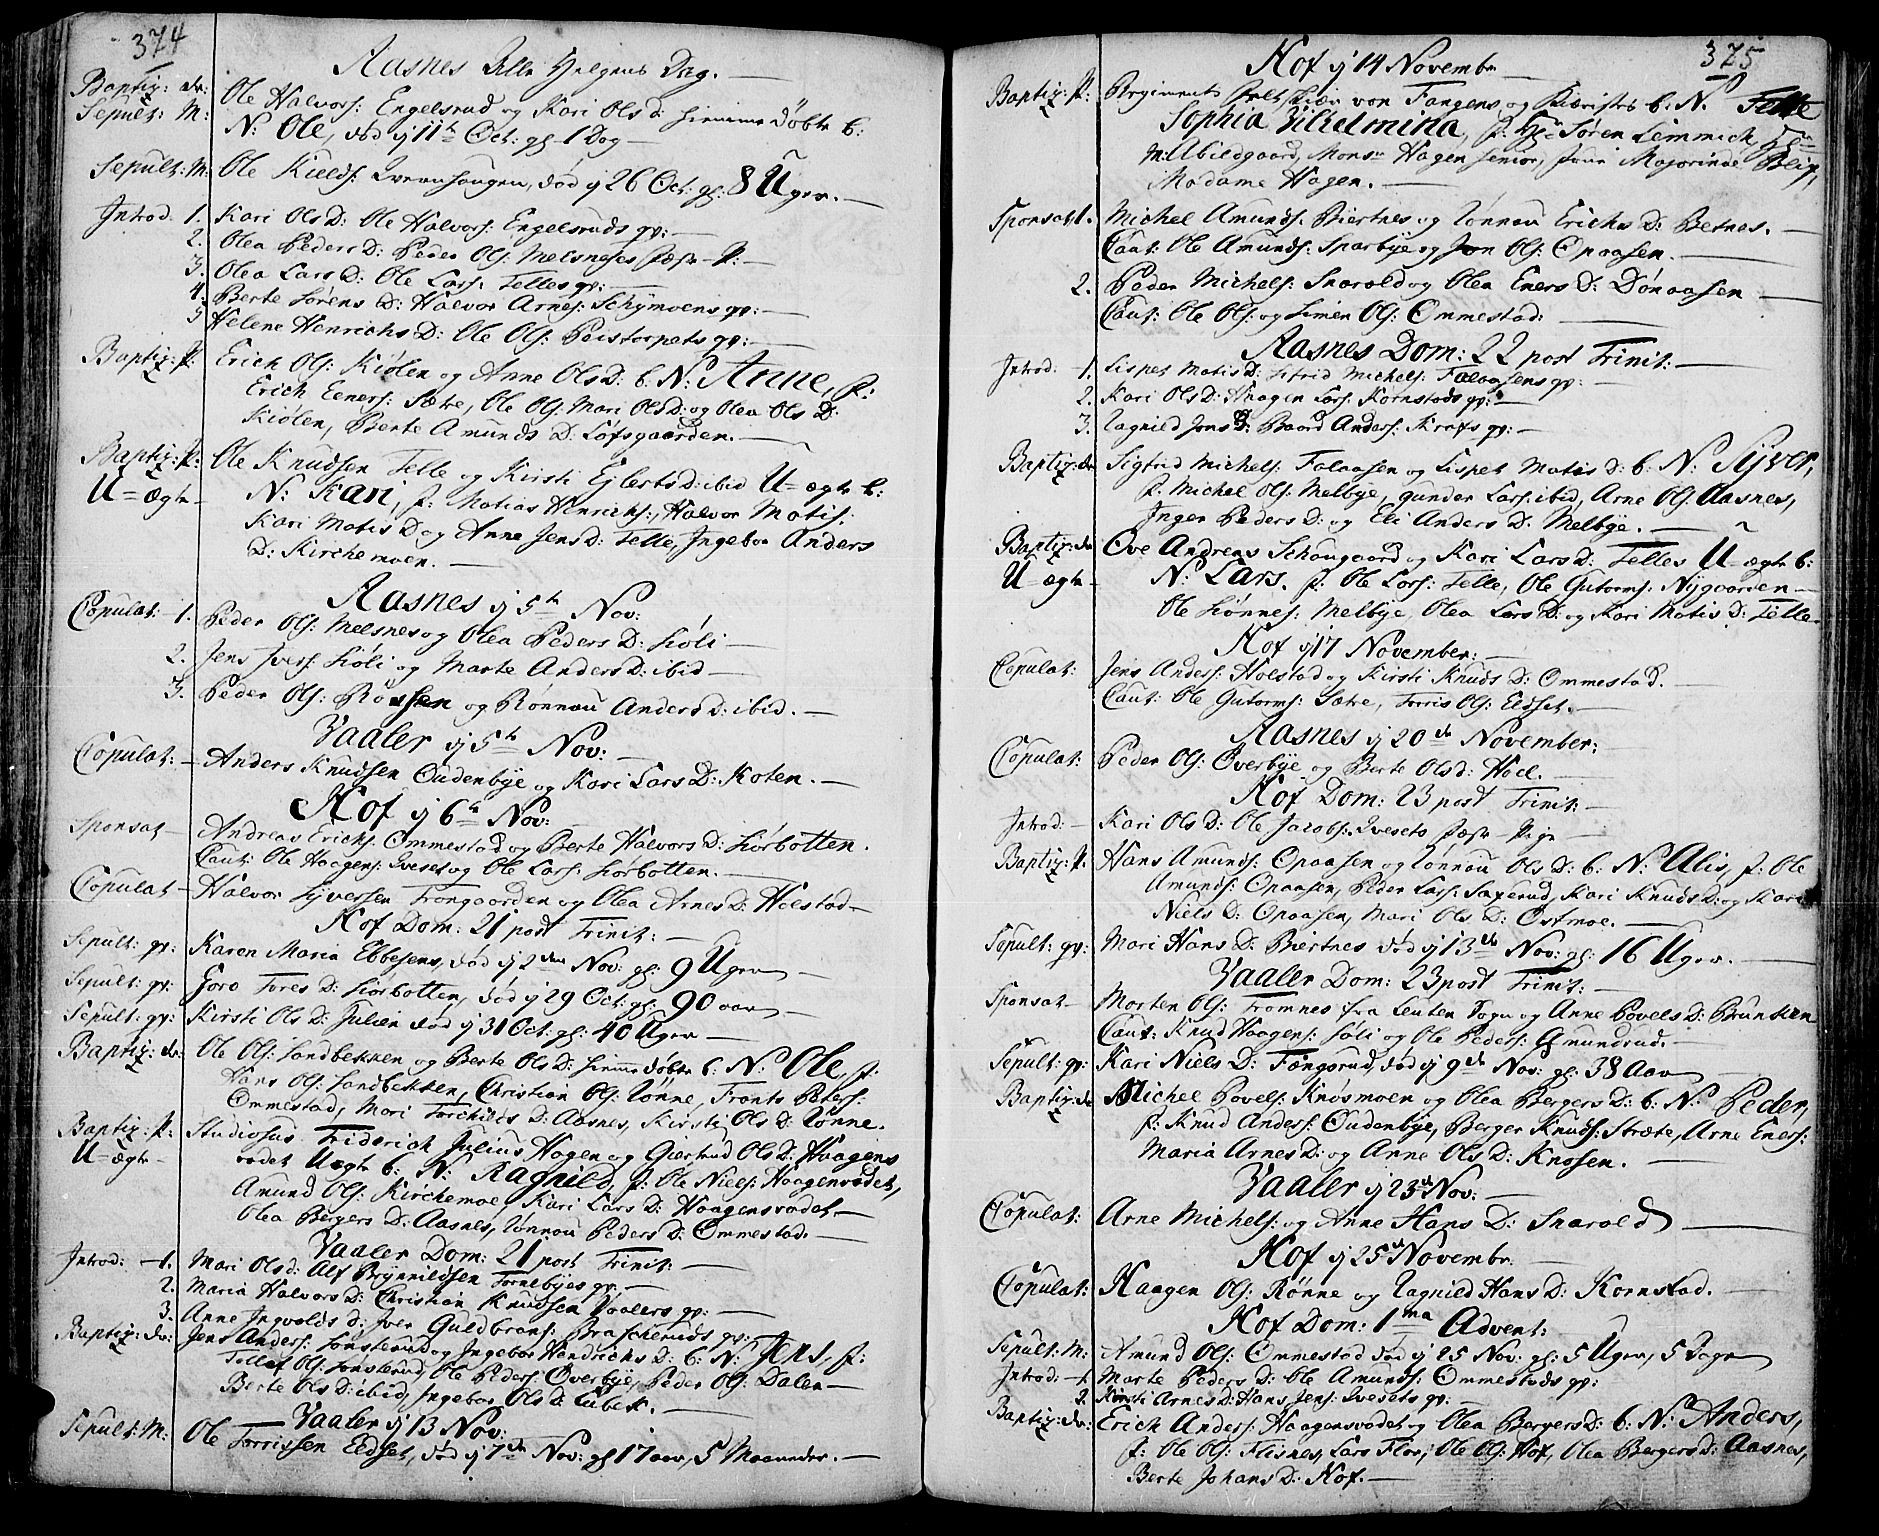 374
Aasnes Alle Helgens Dag.
Baptiz: dr: Ole Halvors: Engelsrud og Kari Ols D: hiemme døbte b:
Sepult: M: N: Ole, død ij 11te Oct: gl: 1 Dag
Sepult: M: Ole Kields: død ij 26 Oct: gl: 8 Uger.
Introd. 1. Kari Ols D: Ole Halvors: Engelsruds qv:
2. Olea Peders D: Peder Ols: Melsneses
3. Olea Lars D: Ole Lars: Telles qv:
4. Berte Sørens D: Halvor Arnes: Schÿmoens qv:
5 Helene Henrichs D: Ole Ols: Peistorpets qv:
Baptiz: P: Erich Ols: Kiølen og Anne Ols D: b: N: Anne, f:
Erich Eeners: Sætre, Ole Ols: Mari Ols D: og Olea Ols D:
Kiølen, Berte Amunds D: Lofsgaarden.
Baptiz: P: Ole Knudsen Telle og Kirsti Ejlerts D: ibid U=ægte b:
U=ægte N: Kari, f: Matias Henrichs:, Halvor Matis:
Kari Matis D og Anne Jens D: Telle, Ingebor Anders
D: Kirchemoen.
Aasnes ij 5te Nov:
Copulat: 1. Peder Ols: Melsnes og Olea Peders D: Lióli
2. Jens Ivers: Lióli og Marte Anders D: ibid
3. Peder Ols: og Rønnau Anders D: ibid.
Vaaler ij 5te Nov:
Copulat: Anders Knudsen Oudenbÿe og Kari Lars D: Koten.
Hof ij 6te Nov:
Sponsat Andreas Erichs: Ommestad og Berte Halvors D: Lørbotten.
Caut: Ole Haagens: Qveset og Ole Lars: Lørbotten.
Copulat Halvor Sÿversen Trongaarden og Olea Arnes D: Holstad
Hof Dom: 21 post Trinit:
Sepult: qv: Karen Maria Ebbesens, død ij 2den Nov: gl: 9 Uger
Sepult: qv: Goro Tores D: Lørbotten, død ij 29 Oct: gl: 90 aar
Sepult: qv: Kirsti Ols D: Julien død ij 31 Oct: gl: 40 Uger
Baptiz: dr: Ole Ols: Sandbekken og Berte Ols D: hiemmedøbte b: N: Ole, f:
Hans Ols: Sandbekken, Christian Ols: Rønne, Frants Peters:
Ommestad, Mari Torchilds D: Aasnes, Kirsti Ols D: Rønne.
Baptiz: P: Studiosus Friderich Julius Hagen og Giertrud Ols D: Haagens
U=ægte vadet Uægte b: N: Ragnild, f: Ole Niels: Haagensvadet,
Amund Ols: Kirchemoe, Kari Lars D: Haagensvadet
Olea Bergers D: Aasnes, Rønnau Peders D: Ommestad.
Vaaler Dom: 21 post Trinit:
Introd: 1. Mari Ols D: Alf Brÿnnildsen Tornebÿes qv:
2. Maria Halvors D: Christian Knudsen Vaalers qv:
3. Anne Ingvolds D: Iver Guldbrans: Brascheruds qv:
Baptiz: dr: Jens Anders: Sønsterud og Ingebor Hendrichs D: b: N: Jens, f:
Tellef Ols: Sønsterud, Ole Peders: Overbÿe, Peder Ols: Dalen
Berte Ols D: ibid, Ingebor Ols D: Lubek.
Vaaler ij 13 Nov:
Sepult: M: Ole Torrissen Eidset, død ij 7de Nov: gl 17 aar, 5 Maaneder.
375
Hof ij 14 Novembr
Baptiz: P: Regiments von Tangens og b: N: Telle
Sophia Vilhelmina, f: Hr: Søren Lemmich, Hr:
M: Abildgaard, Monsr Hagen senior, Majorinde
Madame Hagen.
Sponsat 1. Michel Amunds: Biertnes og Rønnau Erichs D: Betnes.
Caut: Ole Amunds: Sparbÿe og Jon Ols: Opaasen.
2. Peder Michels: Snarold og Olea Eners D: Dønaasen
Caut: Ole Ols: og Simen Ols: Ommestad:
Aasnes Dom: 22 post Trinit:
Introd: 1. Lispet Matis D: Sifrid Michels: Falaasens qv:
2. Kari Ols D: Haagen Lars: Kornstads qv:
3. Ragnild Jons D: Baard Anders: Krafs qv:
Baptiz: dr Sigfrid Michels: Falaasen og Lispet Matis D: b: N: Sÿver,
f: Michel Ols: Melbÿe, gunder Lars: ibid, Arne Ols: Aasnes,
Inger Peders D: og Eli Anders D: Melbÿe.
Baptiz: dr Ove Andreas Schougaard og Kari Lars D: Telles U=ægte b:
U=ægte N: Lars. f: Ole Lars: Telle, Ole Gutorms: Nÿgaarden
Ole Sónnes: Melbÿe, Olea Lars D: og Kari Matis D: Telle.
Hof ij 17 November:
Copulat: Jens Anders: Holstad og Kirsti Knuds D: Ommestad.
Caut: Ole Gutorms: Sætre, Torris Ols: Eidset.
Aasnes ij 20de November:
Copulat: Peder Ols: Overbÿe og Berte Ols D: Hoel.
Hof Dom: 23 post Trinit:
Introd: Kari Ols D: Ole Jacobs: Qvesets
Baptiz: P. Hans Amunds: Opaasen og Rønnau Ols D: b: N: Alis, f: Ole
Amunds: Opaasen, Peder Lars: Sagerud, Kari Knuds D: og Kari
Niels D: Opaasen, Mari Ols D: Ostmoe.
Sepult: qv: Mari Hans D: Biertnes død ij 13de Nov: gl: 16 Uger.
Vaaler Dom: 23 post Trinit:
Sponsat Morten Ols: Tromnes fra Leuten Sogn og Anne Povels D: Brunsken
Caut: Knud Haagens: Søli og Ole Peders: Gmundrud.
Sepult: qv: Kari Niels D: Fangsrud, død ij 9de Nov: gl: 38 Aar
Baptiz: dr Michel Povels: Knøsmoen og Olea Bergers D: b: N: Peder,
f: Knud Anders: Oudenbÿe, Berger Knuds: Stræte, Arne Eners:
Maria Arnes D: og Anne Ols D: Knøsen.
Vaaler ij 23de Nov:
Copulat: Arne Michels: og Anne Hans D: Snarold
Hof ij 25de Novembr.
Copulat: Haagen Ols: Rønne og Ragnild Hans D: Kornstad.
Hof Dom: 1ma Advent:
Sepult: M: Amund Ols: Ommestad død ij 25 Nov: gl: 5 Uger, 5 Dage
Introd: 1 Marte Peders D: Ole Amunds: Ommestads qv:
2. Kirsti Arnes D: Hans Jens: Qvesets qv:
Baptiz: dr: Erich Anders: Haagensvadet og Olea Bergers D: b: N: Anders,
f: Ole Ols: Flisnes, Lars Flor, Ole Ols: Hof, Olea Bergers D: Aasnes,
Berte Johans D: Hof.